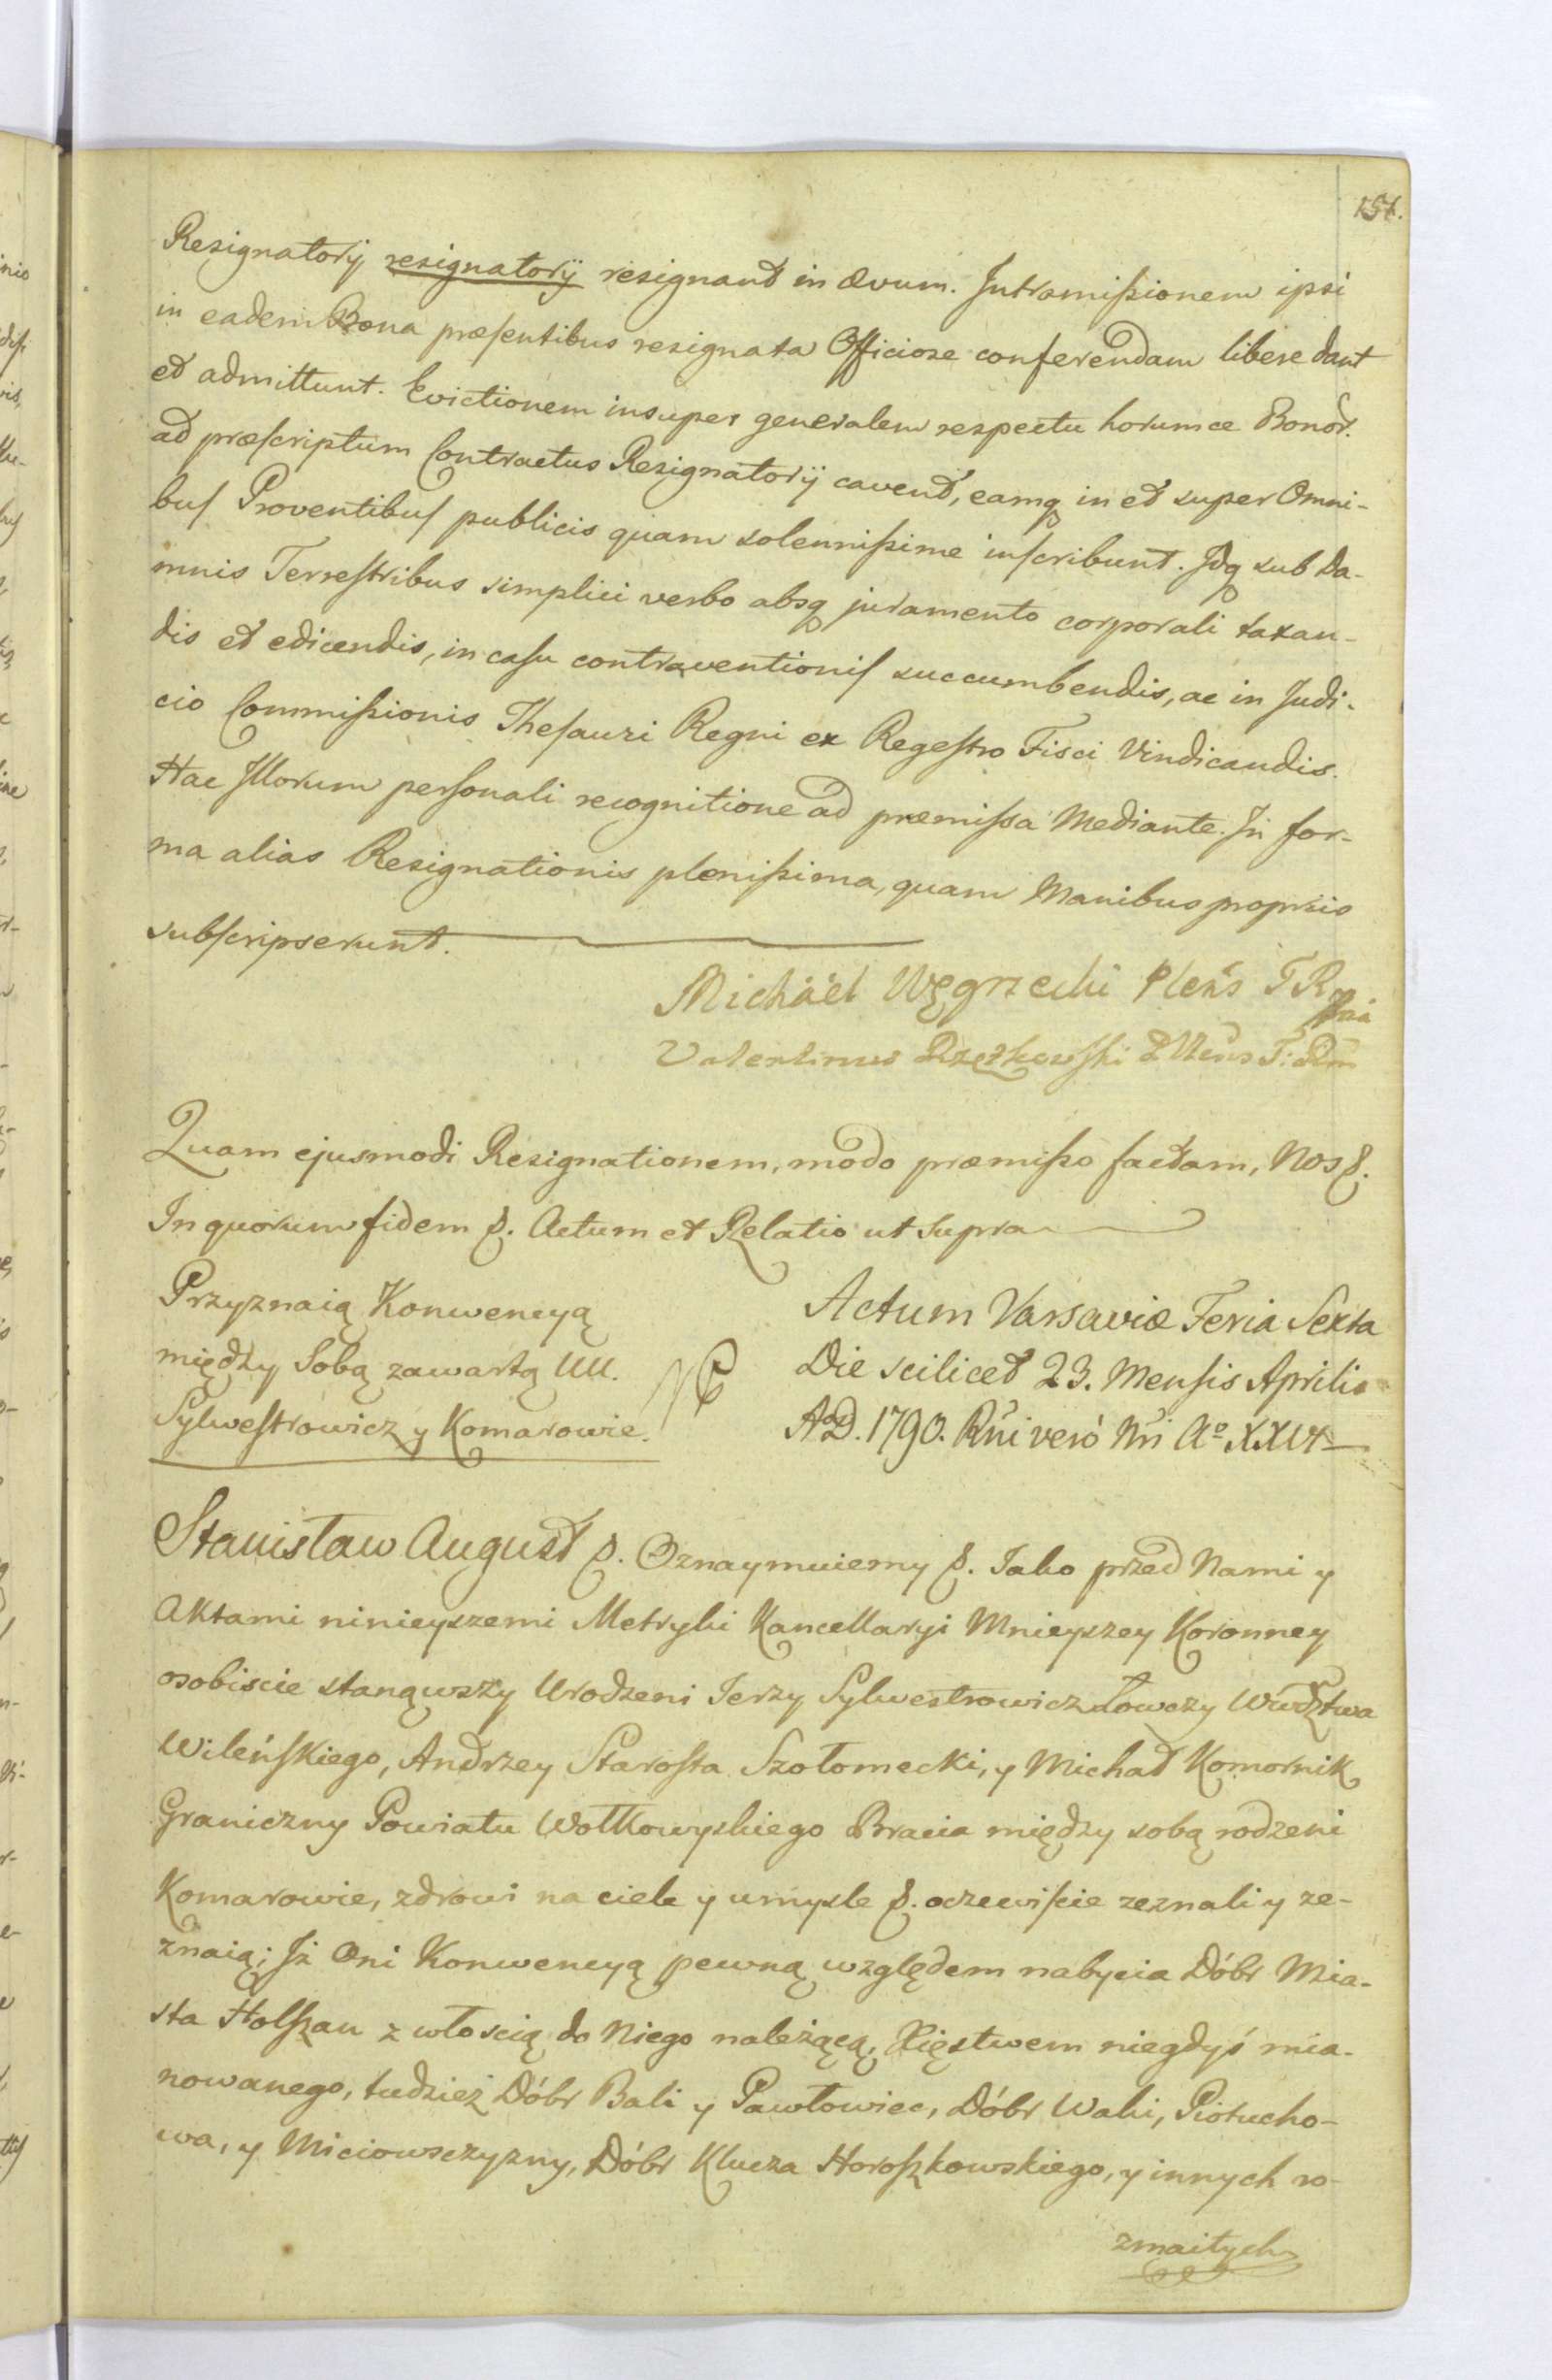 157.
Resignatorÿ resignatorÿ resignant in ævum. Intromißionem ipsi
in eadem Bona præsentibus resignata Officiose conferendam libere dant
et admittunt. Evictionem insuper generalem respectu horumce Bonor.
ad præscriptum Contractus Resignatorÿ cavent, eamq in et super Omni-
bus Proventibus publicis quam solennißime inscribunt. Idq sub Da-
mnis Terrestribus simplici verbo absq juramento corporali taxan-
dis et edicendis, in casu contraventionis succumbendis, ac in Judi-
cio Commißionis Thesauri Regni ex Regestro Fisci Vindicandis.
Hac Illorum personali recognitione ad præmissa Mediante. In for-
ma alias Resignationis plenißima, quam Manibus proprüs
subscripserunt.
Michäel Węgrzecki
Valentinus Rzętkowski
Quam ejusmodi Resignationem, modo præmißo factam, Nos &.
In quorum fidem &. Actum et Relatio ut supra
Przyznaią Konwencyą
między Sobą zawartą UU.
Sylwestrowicz y Komarowie.
Actum Varsaviæ Feria Sexta
Die scilicet 23. Mensis Aprilis
AD. 1790. Rñi veró Nri Aº XXVI
Stanisław August &. Oznaymuiemy &. Iako przed Nami y
Aktami ninieyszemi Metryki Kancellaryi Mnieyszey Koronney
osobiscie stanąwszy Urodzeni Ierzy Sylwestrowicz Łowczy Wwdztwa
Wileńskiego, Andrzey Starosta Szołomecki, y Michał Komornik
Graniczny Powiatu Wołkowyskiego Bracia między sobą rodzeni
Komarowie, zdrowi na ciele y umysle &. oczewiscie zeznali y ze-
znaią; Iż Oni Konwencyą pewną względem nabycia Dóbr Mia-
sta Holszan z włoscią do Niego należącą, Xięstwem niegdyś mia-
nowanego, tudzież Dóbr Bali y Pawłowicc, Dóbr Waki, Piotucho-
wa, y Miciowsczyzny, Dóbr Klucza Horoszkowskiego, y innych ro-
zmaitych